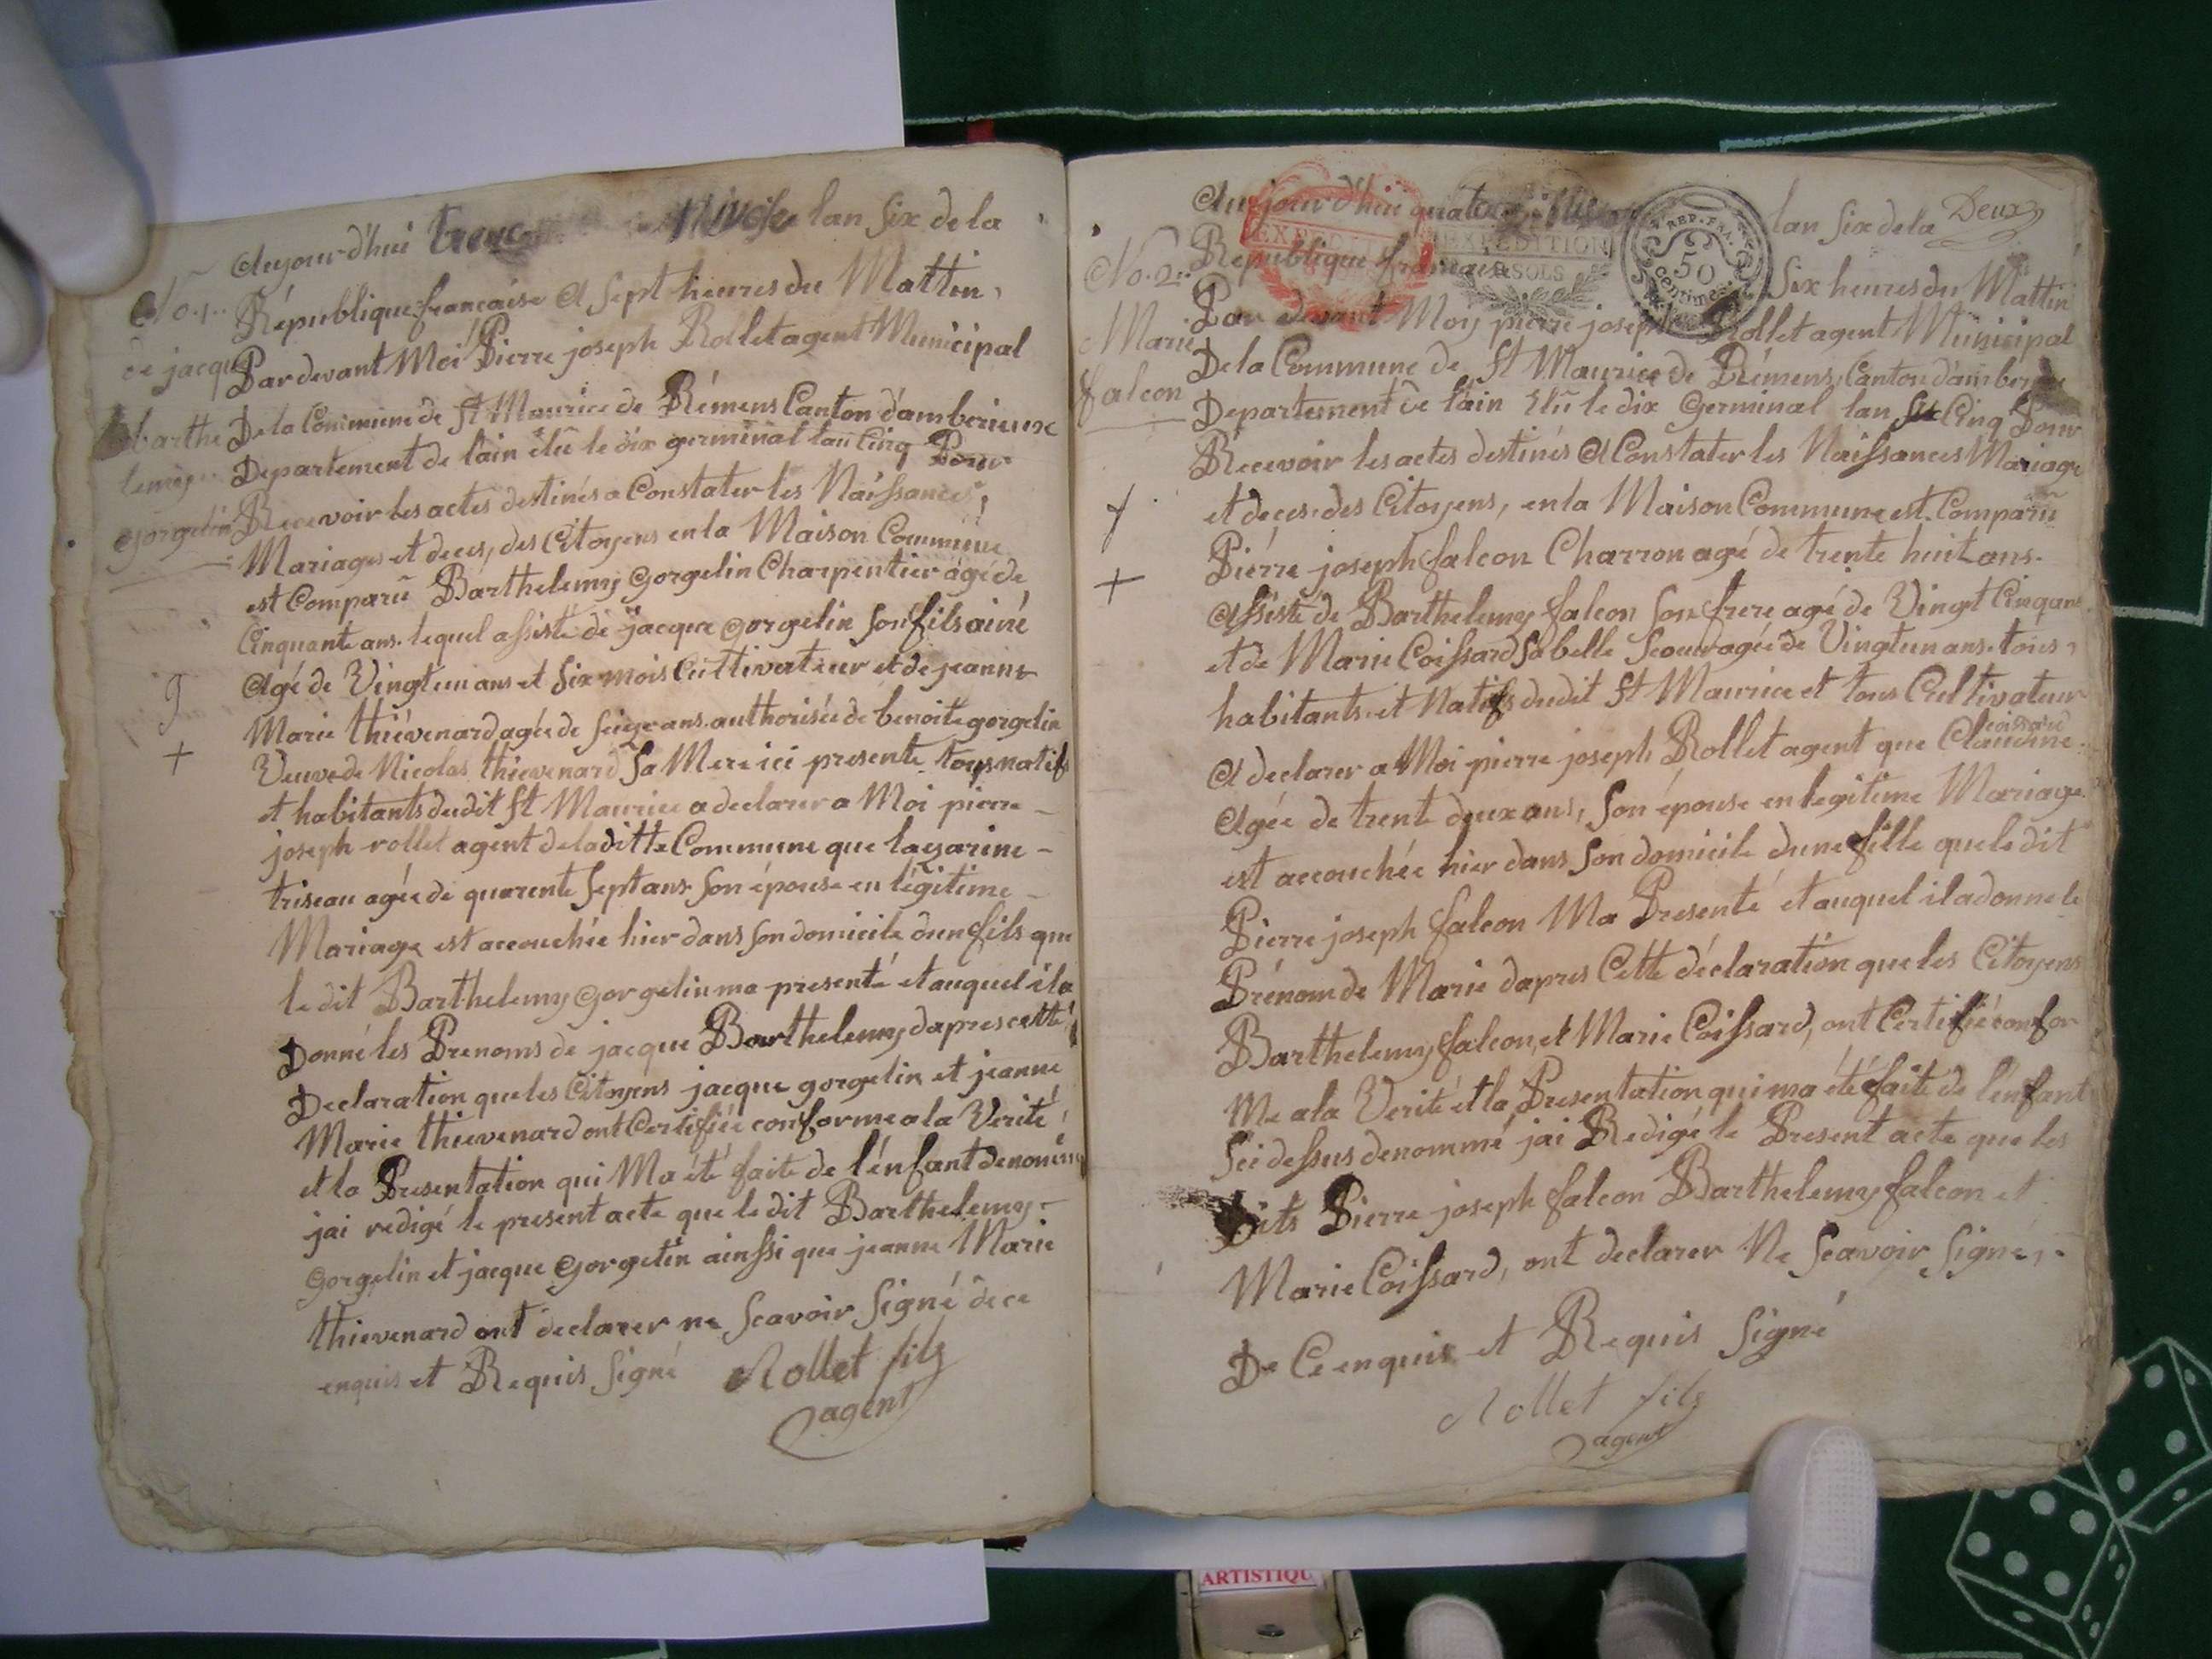 Aujourd'hui treize Nivose lan six de la
No. 1.
République francaise A sept heures du Mattin,
de jacque
Pardevant Moi Pierre joseph Rollet agent Municipal
barthe
De la Commune de St Maurice de Rémens Canton d'amberieux
lemy
Departement de l'ain élu le dix germinal lan Cinq Pour
gorgelin
Recevoir les actes destinés a Constater les Naissances,
Mariages et deces, des Citoyens en la Maison Commune
est Comparu Barthelemy Gorgelin Charpentier agé de
Cinquante ans. lequel assisté de jacque gorgelin son fils ainé
Agé de Vingt un ans et six mois Cultivateur et de jeanne
Marie thiévenard agée de seize ans. authorisée de benoite gorgelin
Veuve de Nicolas thievenard sa Mere ici presente tous natifs
et habitants dudit St Maurice a declarer a Moi pierre
joseph rollet agent de la ditte Commune que lazarine
triseau agée de quarente sept ans son épouse en légitime
Mariage est accouchée hier dans son domicile dun fils que
le dit Barthelemy Gorgelin ma presenté et auquel il a
Donné les Prenoms de jacque Barthelemy dapres cette
Declaration que les Citoyens jacque gorgelin et jeanne
Marie thievenard ont Certifiée conforme a la Verité
et la Presentation qui Ma été faite de l'énfant denomé
jai redigé le present acte que le dit Barthelemy
Gorgelin et jacque Gorgelin ainssi que jeanne Marie
thievenard ont declarer ne Scavoir Signé de ce
enquis et Requis Signé Rollet fils
agent
Deux
Aujourd'hui quatorze lan six de la
No. 2.
République francaise Six heures du Mattin
EXPEDITION
EXPEDITION
SOLS
REP. FRA.
50
centimes
Par devant Moy pierre joseph Rollet agent Municipal
Marie
De la Commune de St Maurice de Rémens, Canton d'amberieux
falcon
Departement de l'ain élu le dix Germinal lan Cinq Pour
Recevoir les actes destinés A Constater les Naissances Mariage
et deces des Citoyens, en la Maison Commune est Comparu
Piérre joseph falcon Charron agé de trente huit ans.
Assisté de Barthelemy falcon son frere agé de Vingt Cinq ans
et de Marie Coissard sa belle Soeur agée de Vingt un ans. tous
habitants et Natifs dudit St Maurice et tous Cultivateur
coissard
A declarer a Moi pierre joseph Rollet agent que Claudine
Agée de trente deux ans, son épouse en legitime Mariage
est accouchée hier dans son domicile dune fille que le dit
Pierre joseph falcon Ma Presenté et auquel il a donne le
Prénom de Marie dapres Cette déclaration que les Citoyens
Barthelemy falcon, et Marie Coissard, ont Certifié confor
Me a la Verité et la Presentation qui ma été faite de l'énfant
Sci dessus denommé jai Redigé le Present acte que les
dits Pierre joseph falcon Barthelemy falcon et
Marie Coissard, ont declarer Ne Scavoir Signé,
De Ce enquis et Requis Signé
Rollet fils
agent
ARTISTIQU